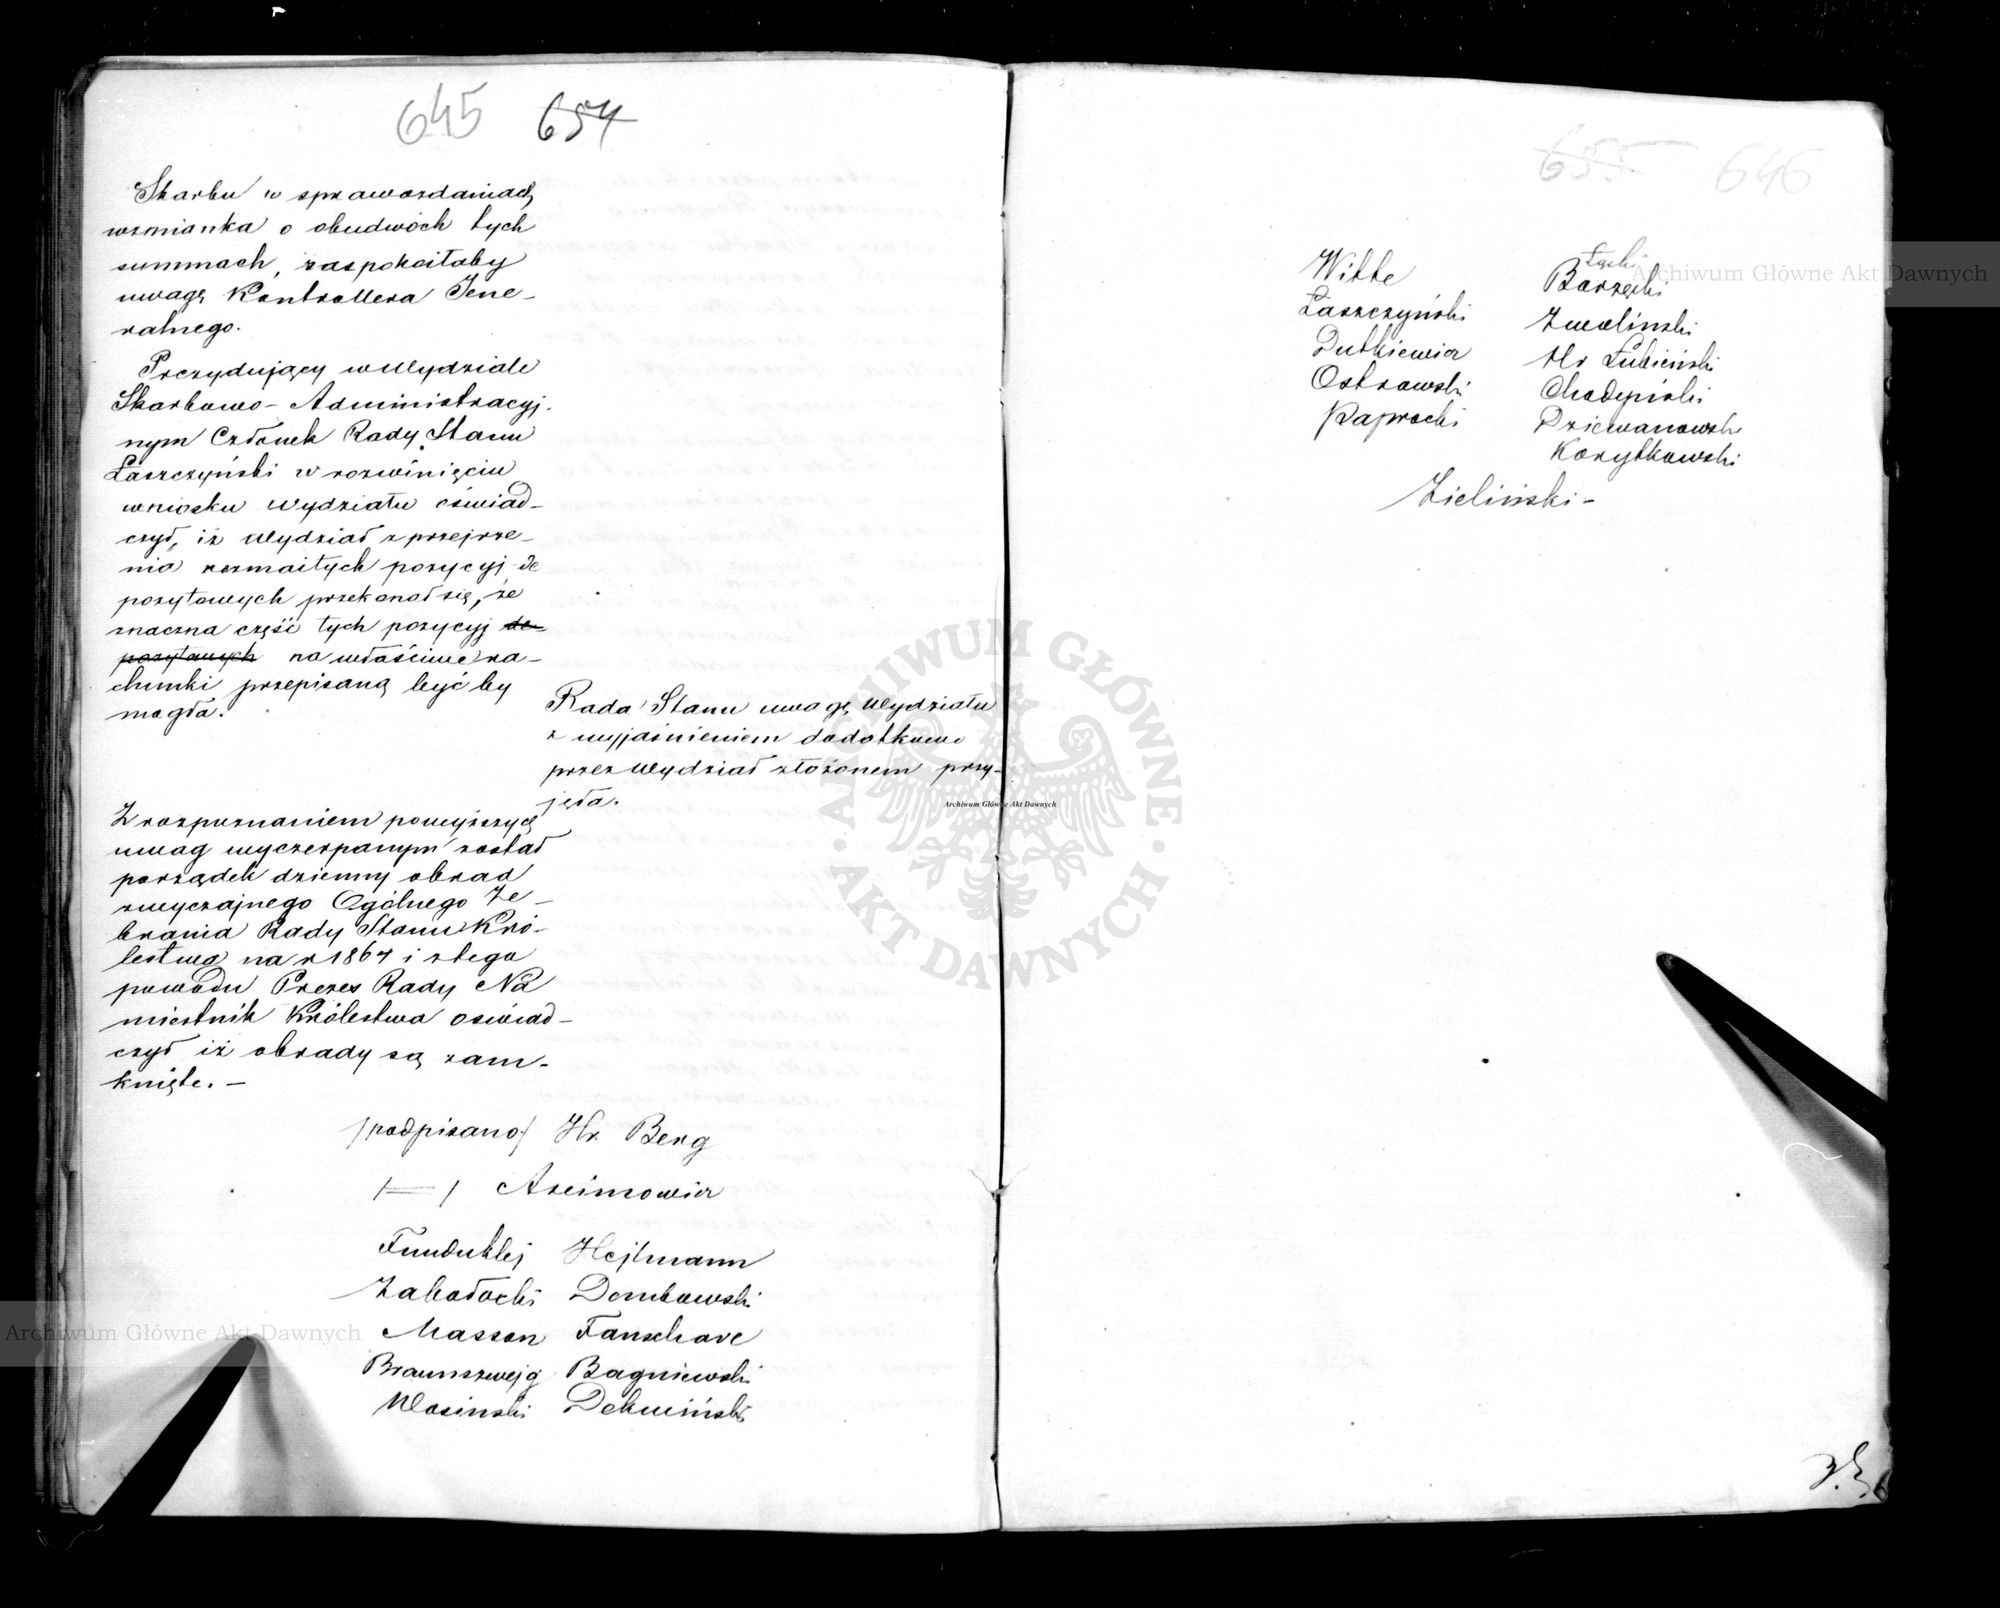 645 654
Skarbu w sprawozdaniach
wzmianka o obudwóch tych
summach, zaspokoiłaby
uwagę Kontrollera Jene-
ralnego.
Prezydujący w Wydziale
Skarbowo-Administracyj-
nym Członek Rady Stanu
Łaszczyński w rozwinięciu
wniosku Wydziału oświad-
czył, iż Wydział z przejrze-
nia rozmaitych pozycyj de
pozytowych przekonał się, że
znaczna część tych pozycyj de-
pozytowych na właściwe ra-
chunki przepisaną być by
mogła.
Rada Stanu uwagę Wydziału
z wyjaśnieniem dodatkowo
przez Wydział złożonem przy-
jęła.
Z rozpoznaniem powyższych
uwag wyczerpanym został
porządek dzienny obrad
zwyczajnego Ogólnego Ze-
brania Rady Stanu Kró-
lestwa na r 1864 i z tego
powodu Prezes Rady Na
miestnik Królestwa oświad-
czył iż obrady są zam-
knięte. —
/podpisano/ Hr. Berg
/=/ Arcimowicz
Funduklej Hejlmann
Zabołocki Dembowski
Masson Fanschave
Braunszwejg Bagniewski
Wosinski
655 646
Witte Łęski
Łaszczyński Borzęcki
Dutkiewicz Zwoliński
Ostrowski Hr Łubieński
Paprocki Chodyński
Dziewanowski
Korytkowski
Zieliński -
Archiwum Główne Akt Dawnych
Archiwum Główne Akt Dawnych
Archiwum Główne Akt Dawnych
ARCHIWUM GŁÓWNE · AKT DAWNYCH ·